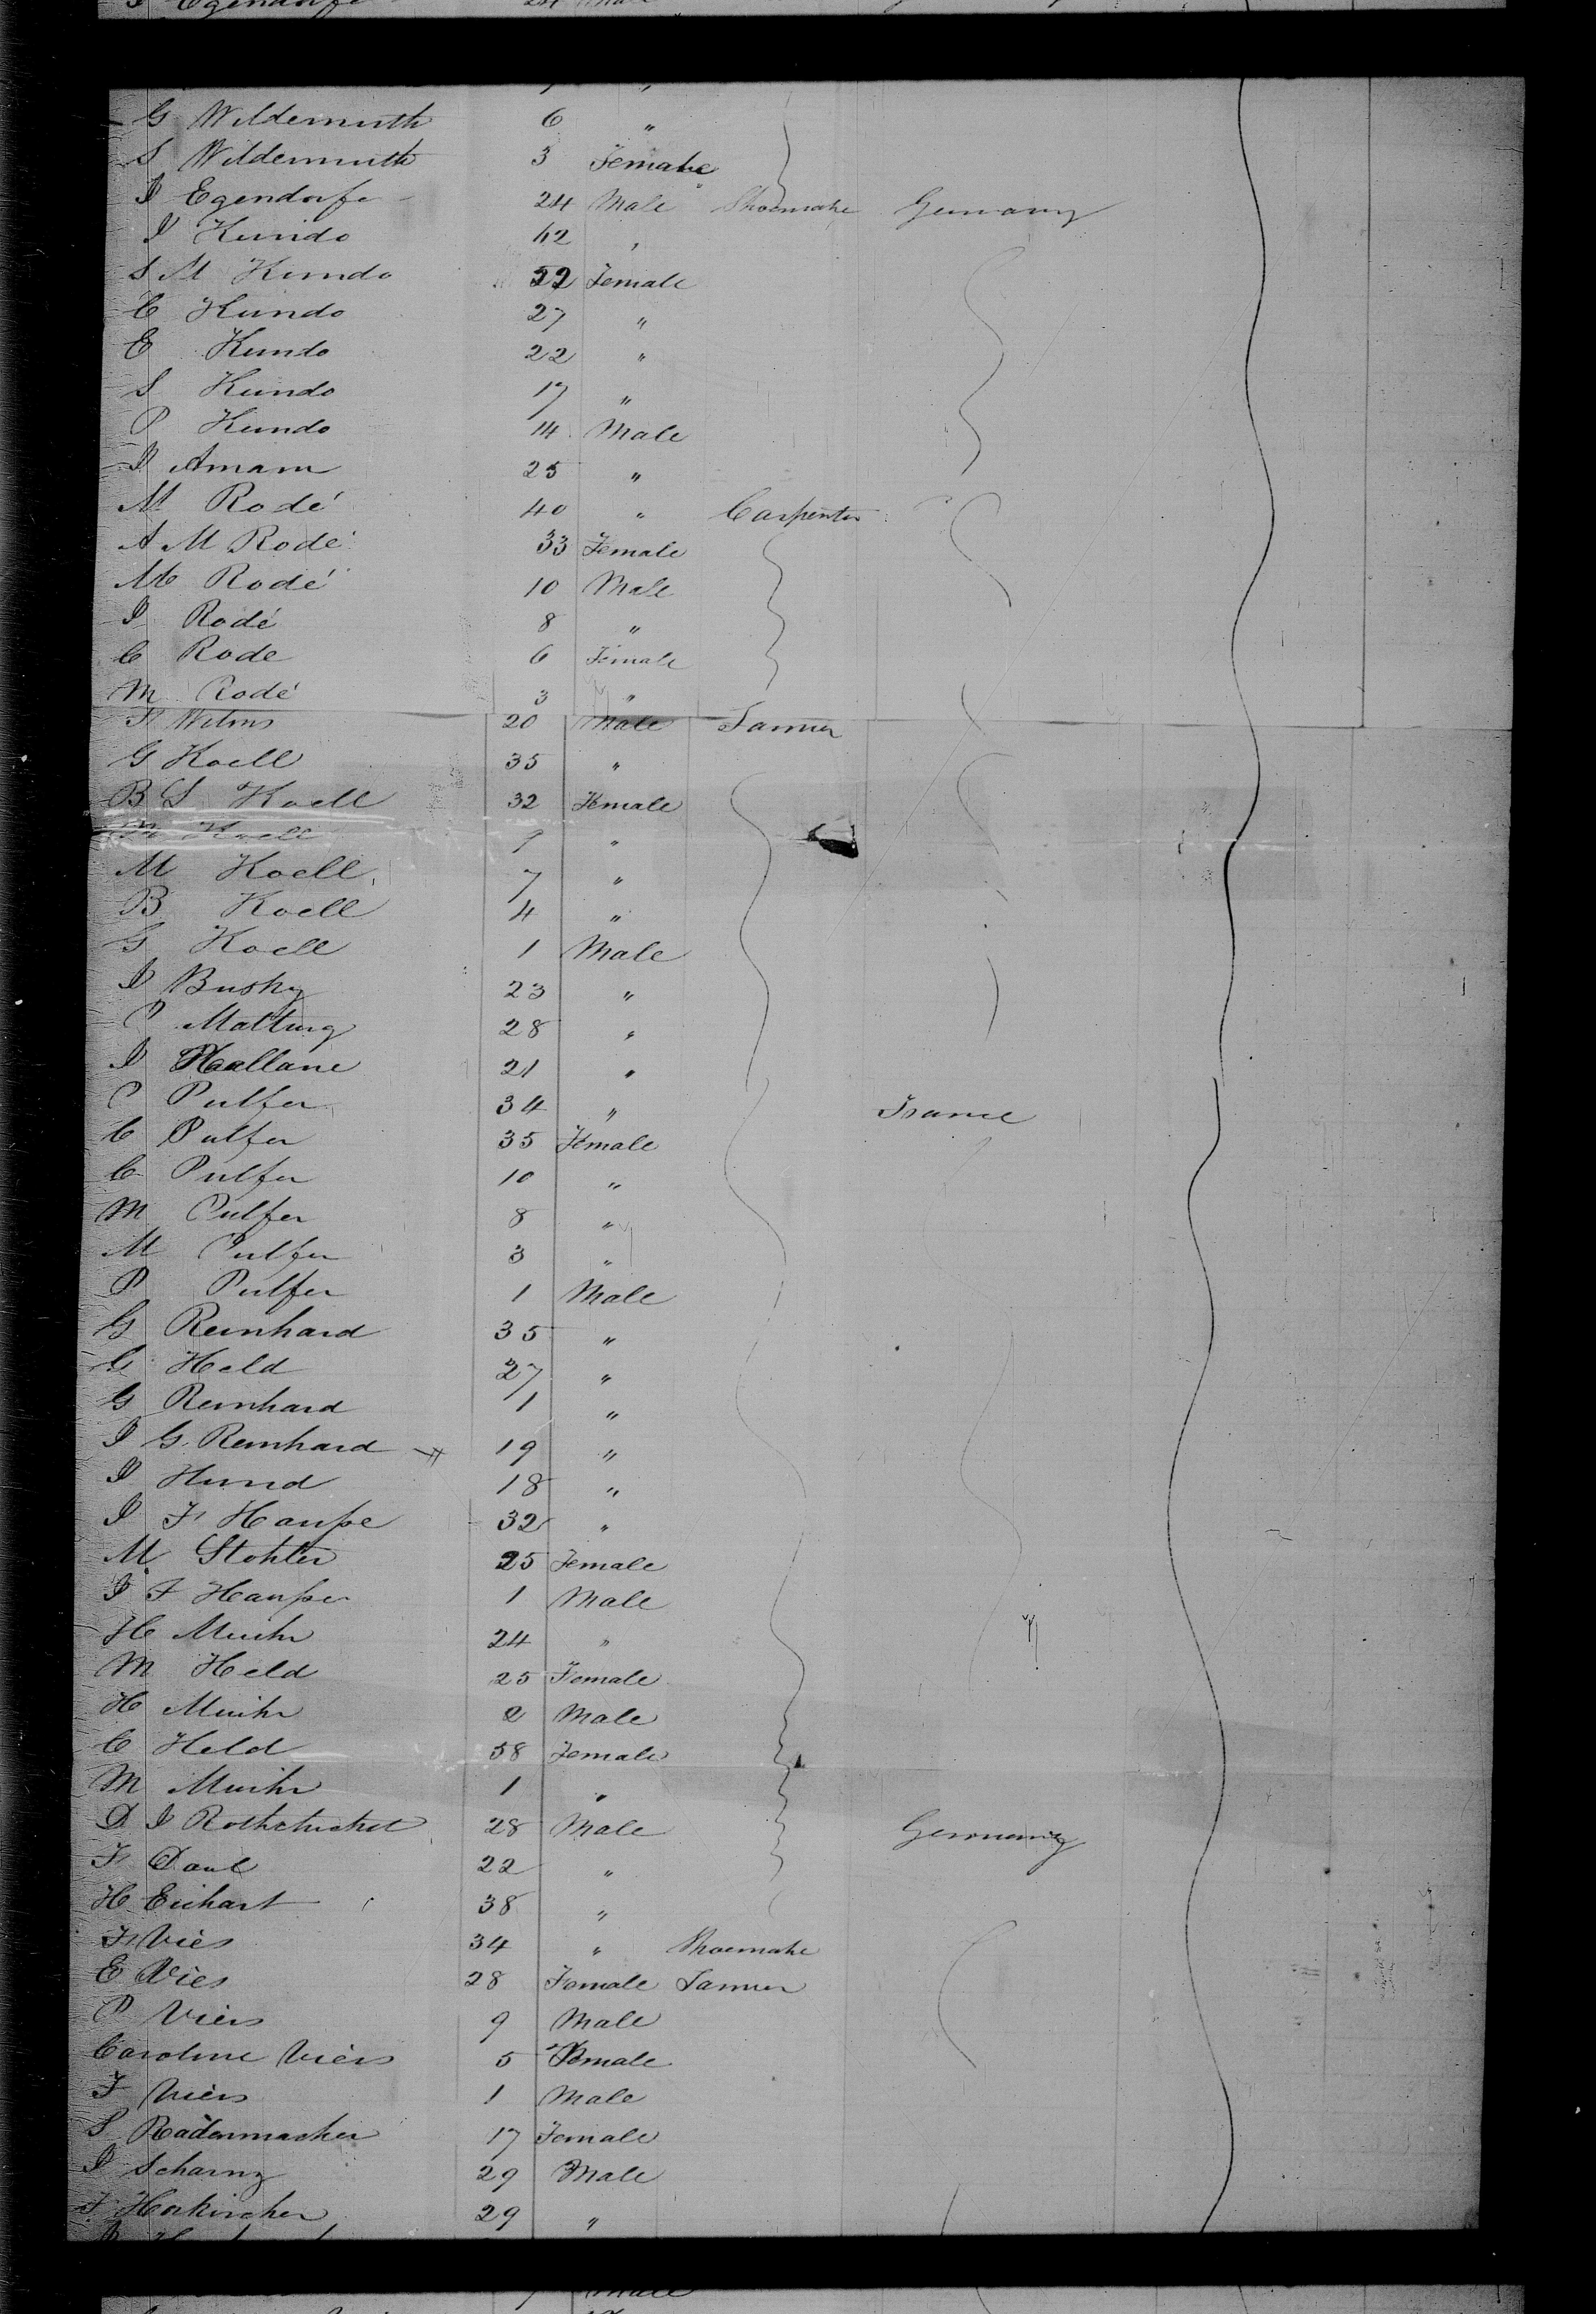 G Wildermuth 6 "
S Wildermuth 3 Female
I Egendorfe 24 Male Shoemake Germany
I Kundo 42 "
S M Kundo 52 Female
C Kundo 27 "
E Kundo 22 "
S Kundo 17 "
P Kundo 14 Male
I Amam 25 "
M Rodé 40 " Carpenter
A M Rodé 33 Female
M Rodé 10 Male
I Rodé 8 "
C Rode 6 Female
M Rodé 3 "
F Wilms 20 Male Farmer
G Koell 35 "
B S Koell 32 Female
Koell 9 "
M Koell 7 "
B Koell 4 "
G Koell 1 Male
I Busky 23 "
P Mattung 28 "
I Hallane 21 "
P Pulfer 34 " France
C Pulfer 35 Female
C Pulfer 10 "
M Pulfer 8 "
M Pulfer 3 "
P Pulfer 1 Male
G Reinhard 35 "
G Held 27 "
G Reinhard 1 "
I G Reinhard 19 "
I Hund 18 "
I F Haupe 32 "
M Stohler 25 Female
I F Hauper 1 Male
H Muihr 24 "
M Held 25 Female
H Muihr 2 Male
C Held 58 Female
M Muihr 1 "
D I 28 Male Germany
F Daul 22 "
H Eichart 38 "
F Viès 34 " Shoemake
E Viès 28 Female Farmer
P Vièrs 9 Male
Caroline Vièrs 5 Female
F Vièrs 1 Male
S Radenmacher 17 Female
I Scharny 29 Male
F Horkircher 29 "